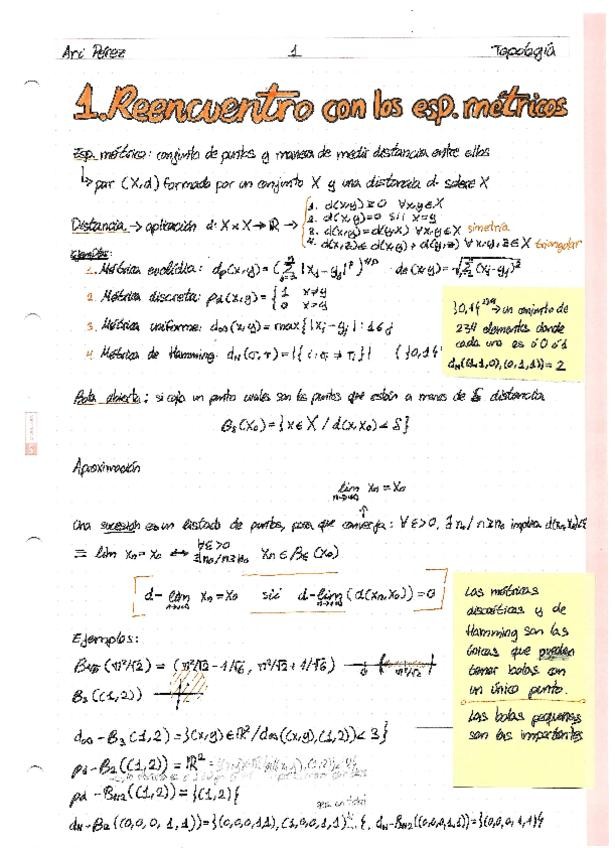 Ari Pérez 1 Topología
1. Reencuentro con los esp. métricos
Esp. métrico: conjunto de puntos y manera de medir distancia entre ellos
↳ par (X,d) formado por un conjunto X y una distancia d sobre X
1. d(x,y)≥0 ∀x,y∈X
2. d(x,y)=0 sii x=y
Distancia → aplicación d: X×X→ℝ →
3. d(x,y)=d(y,x) ∀x,y∈X simetría
4. d(x,z)≤d(x,y)+d(y,z) ∀x,y,z∈X triangular
Ejemplos:
1. Métrica euclídea: dp(x,y)=(Σ|xj-yj|^p)^1/p de(x,y)=√Σ(xj-yj)²
2. Métrica discreta: ρd(x,y)={1 x≠y
0 x=y
3. Métrica uniforme: d∞(x,y)=max{|xj-yj|: 1≤j
4. Métrica de Hamming: dH(σ,τ)=|{i:σi≠τi}| {}0,1{
→ un conjunto de
234 elementos donde
cada uno es ó 0 ó 1
dH((1,1,0),(0,1,1))=2
Bola abierta: si cojo un punto cuales son los puntos que están a menos de δ distancia
Bδ(x0)={x∈X / d(x,x0)<δ}
Aproximación
lim xn = x0
n→∞
↑
Una sucesión es un listado de puntos, para que converja: ∀ε>0, ∃n0/n≥n0 implica d(xn,x0)<ε
≡ lim xn=x0 ↔ ∀ε>0 ∃n0/n≥n0 xn∈Bε(x0)
d-lim xn=x0 sii d-lim(d(xn,x0))=0
n→∞ n→∞
Las métricas
discréticas y de
Hamming son las
únicas que pueden
tener bolas con
un único punto.
Las bolas pequeñas
son las importantes
Ejemplos:
B1/√6(π²/√2) = (π²/√2-1/√6, π²/√2+1/√6) 0 π²/√2
B3((1,2))
d∞-B3(1,2)={(x,y)∈ℝ²/d∞((x,y),(1,2))<3}
ρd-B2((1,2))=ℝ²
ρd-B1/2((1,2))={(1,2)}
dH-B2((0,0,0,1,1))={(0,0,0,1,1),(1,0,0,1,1)...}, dH-B1/2((0,0,0,1,1))={(0,0,0,1,1)}